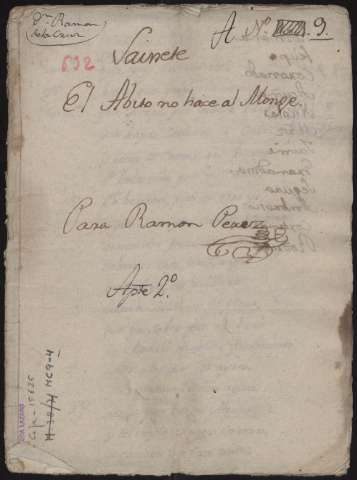 Dn. Ramon
de la Cruz
A Nº 9.
692
Sainete
El Abito no hace al Monge.
Para Ramon Perez
Apte 2.º